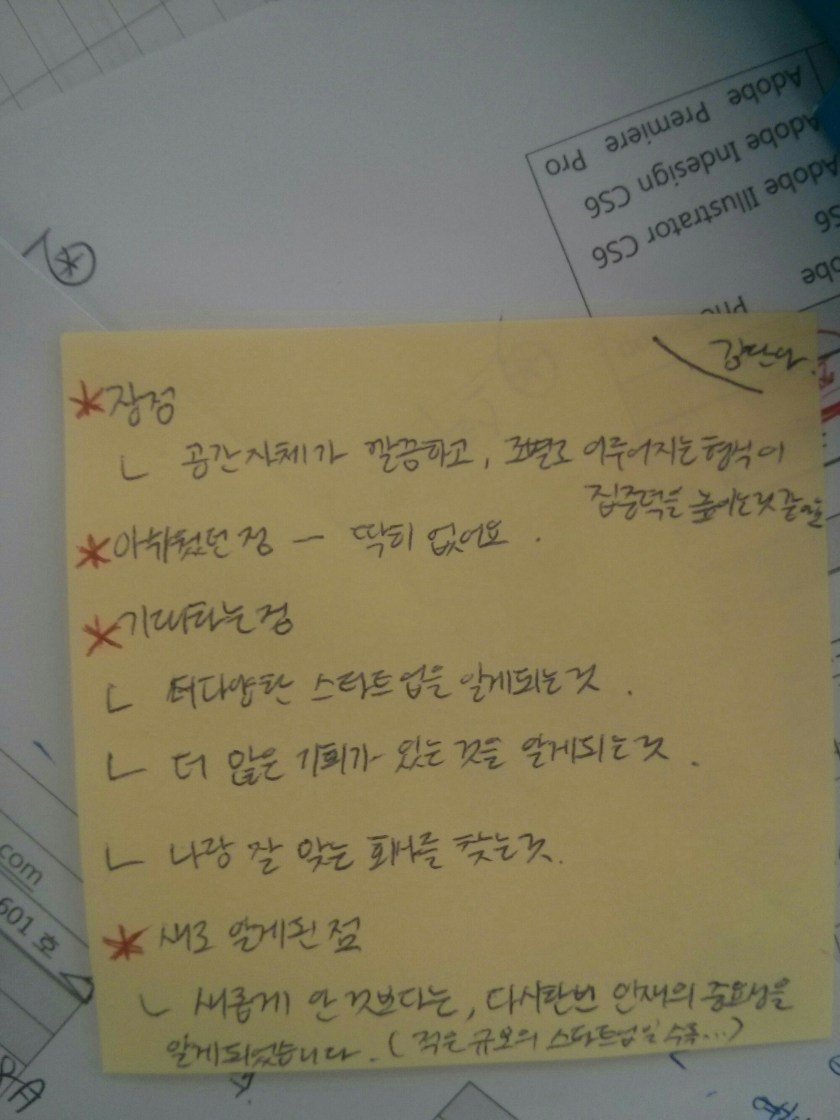 Adobe Premiere Pro
Adobe Indesign CS6
Adobe Illustrator CS6
강단아
*장점
ㄴ 공간자체가 깔끔하고, 조별로 이루어지는 형식이
집중력을 높이는것 같음
*아쉬웠던 점 - 딱히 없어요.
*기대하는점
ㄴ 더다양한 스타트업을 알게되는 것.
ㄴ 더 많은 기회가 있는 것을 알게되는 것.
ㄴ 나랑 잘 맞는 회사를 찾는것.
* 새로 알게된 점
ㄴ 새롭게 안 것보다는, 다시한번 인재의 중요성을
알게되었습니다. (적은 규모의 스타트업일 수록...)
com
601 호